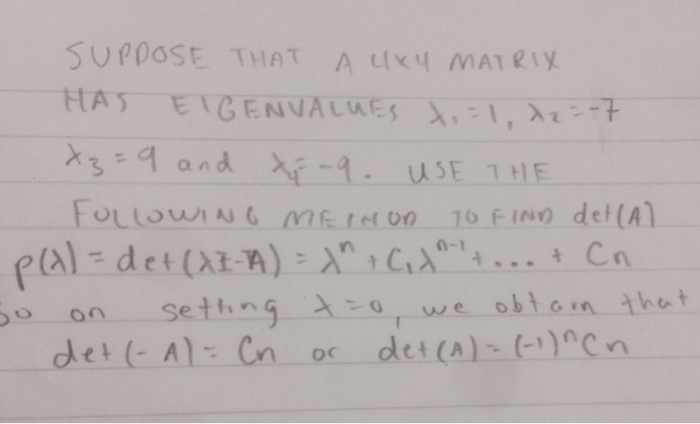 SUPPOSE THAT A 4x4 MATRIX
HAS EIGENVALUES λ₁=1, λ₂=-7
λ₃=9 and λ₄=-9. USE THE
FOLLOWING METHOD TO FIND det(A)
p(λ)=det(λI-A)=λⁿ+C₁λⁿ⁻¹+...+Cn
So on setting λ=0, we obtain that
det(-A)=Cn or det(A)=(-1)ⁿCn